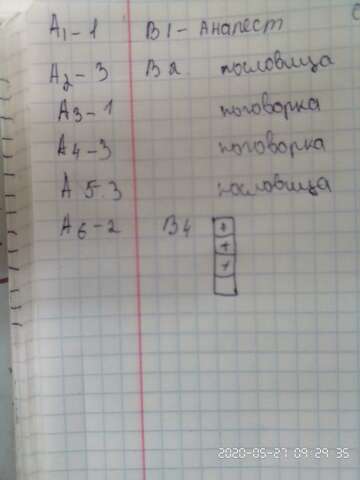 A1-1 B1-Анапест
A2-3 B2 пословица
A3-1 поговорка
A4-3 поговорка
A 5.3 пословица
A6-2 B4 +
+
+
2020-05-27 09:29:35